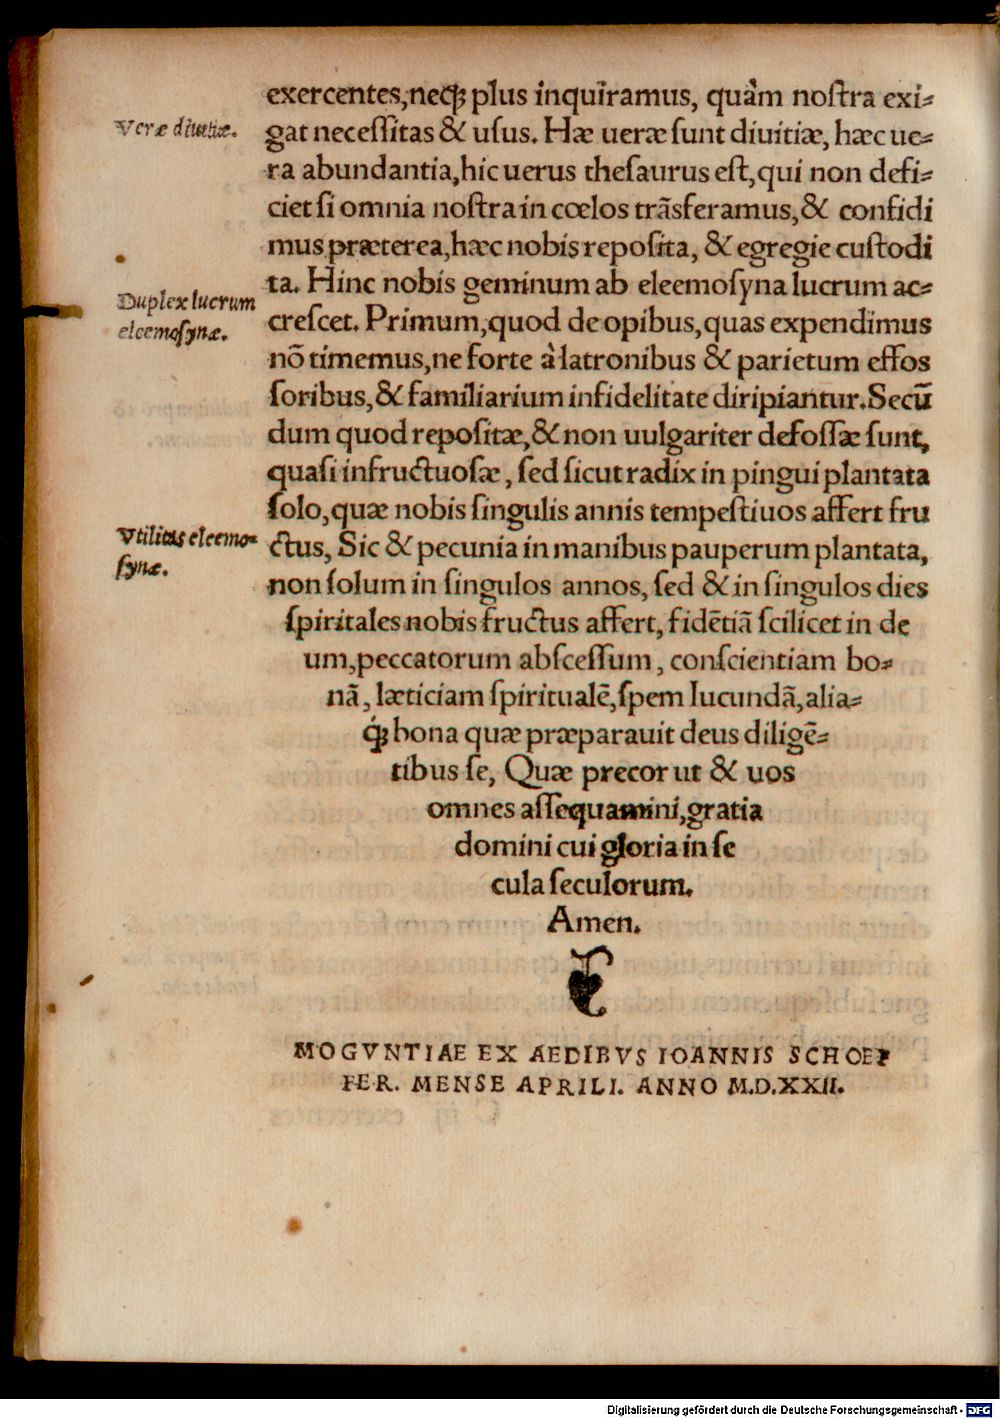 exercentes,neqꝫ plus inquiramus, quàm noſtra exi⸗
Veræ diuitiæ.
gat neceſſitas & uſus. Hæ ueræ ſunt diuitiæ, hæc ue⸗
ra abundantia,hic uerus theſaurus eſt,qui non defi⸗
ciet ſi omnia noſtra in cœlos trãsferamus,& confidi
mus præterea,hæc nobis repoſita, & egregie cuſtodi
ta. Hinc nobis geminum ab eleemoſyna lucrum ac⸗
Duplex lucrum
eleemoſynæ.
creſcet. Primum,quod de opibus,quas expendimus
nõ timemus,ne forte à latronibus & parietum effos
ſoribus,& familiarium infidelitate diripiantur.Secũ
dum quod repoſitæ,& non uulgariter defoſſæ ſunt,
quaſi infructuoſæ, ſed ſicut radix in pingui plantata
ſolo,quæ nobis ſingulis annis tempeſtiuos affert fru
Vtilitas eleemo⸗
ſynæ.
ctus, Sic & pecunia in manibus pauperum plantata,
non ſolum in ſingulos annos, ſed & in ſingulos dies
ſpiritales nobis fructus affert, fidẽtiã ſcilicet in de
um,peccatorum abſceſſum, conſcientiam bo⸗
nã, læticiam ſpiritualẽ,ſpem Iucundã,alia⸗
q́ꝫ bona quæ præparauit deus diligẽ⸗
tibus ſe, Quæ precor ut & uos
omnes aſſequamini,gratia
domini cui gloria in ſe
cula ſeculorum.
Amen.
MOGVNTIAE EX AEDIBVS IOANNIS SCHOEF
FER. MENSE APRILI. ANNO M.D.XXII.
Digitalisierung gefördert durch die Deutsche Forschungsgemeinschaft - DFG